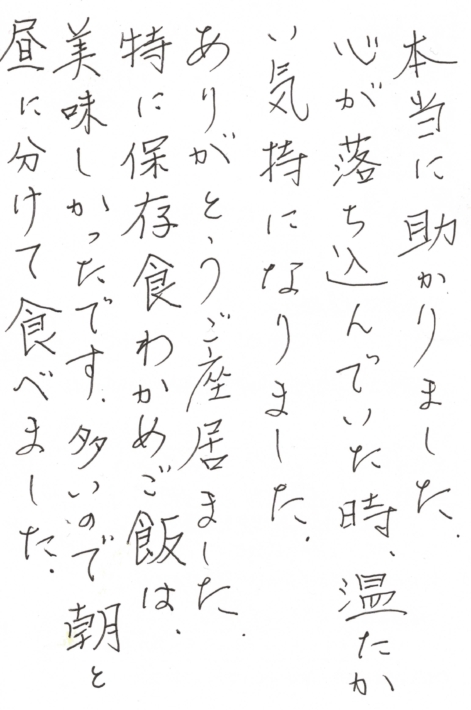 本当に助かりました。
心が落ち込んでいた時、温たか
い気持になりました。
ありがとうご座居ました。
特に保存食わかめご飯は、
美味しかったです。多いので朝と
昼に分けて食べました。